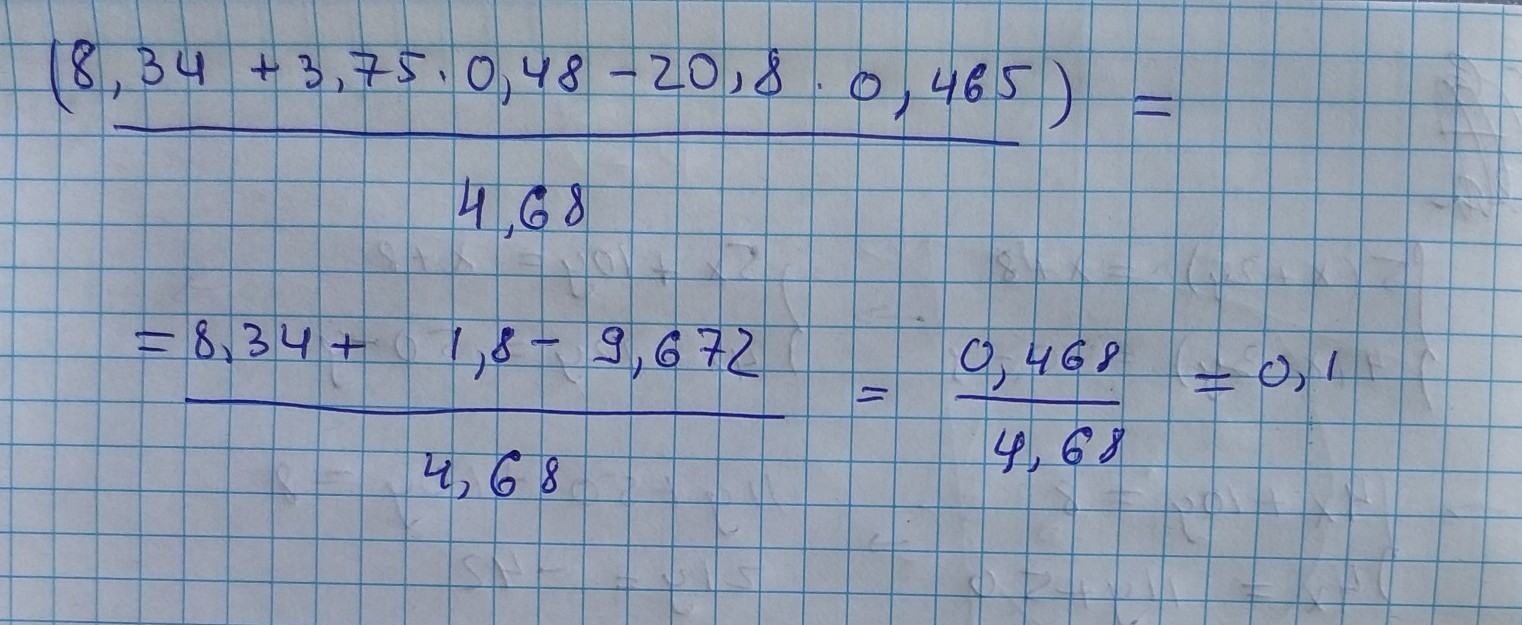 (8,34 + 3,75 · 0,48 - 20,8 · 0,465) =
4,68
= 8,34 + 1,8 - 9,672 = 0,468 = 0,1
4,68 4,68